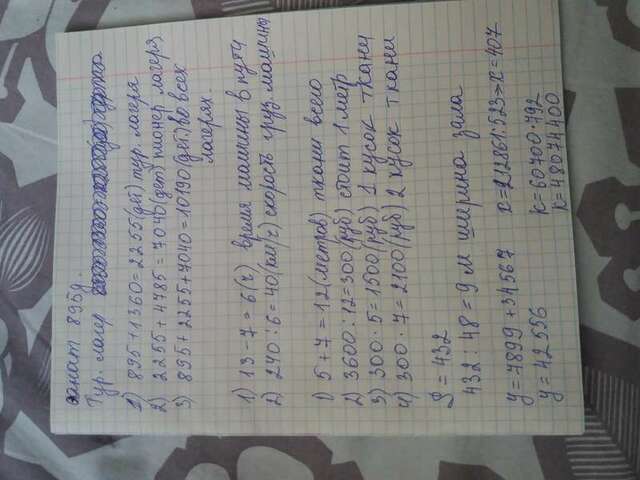 санат 895д.
Тур. лагер
1) 895 + 1360 = 2255 (дет) тур. лагеря
2) 2255 + 4785 = 7040 (дет) пионер лагеря
3) 895 + 2255 + 7040 = 10190 (дет.) во всех
лагерях.
1) 13 - 7 = 6 (ч) время машины в пути
2) 240 : 6 = 40 (км/ч) скорость груз. машины
1) 5 + 7 = 12 (метров) ткани всего
2) 3600 : 12 = 300 (руб) стоит 1 метр
3) 300 · 5 = 1500 (руб) 1 кусок ткани
4) 300 · 7 = 2100 (руб) 2 кусок ткани
S = 432
432 : 48 = 9 м ширина зала
y = 7899 + 34567 x = 212861 : 523 → x = 407
y = 42556 k = 60700 · 792
k = 48074400